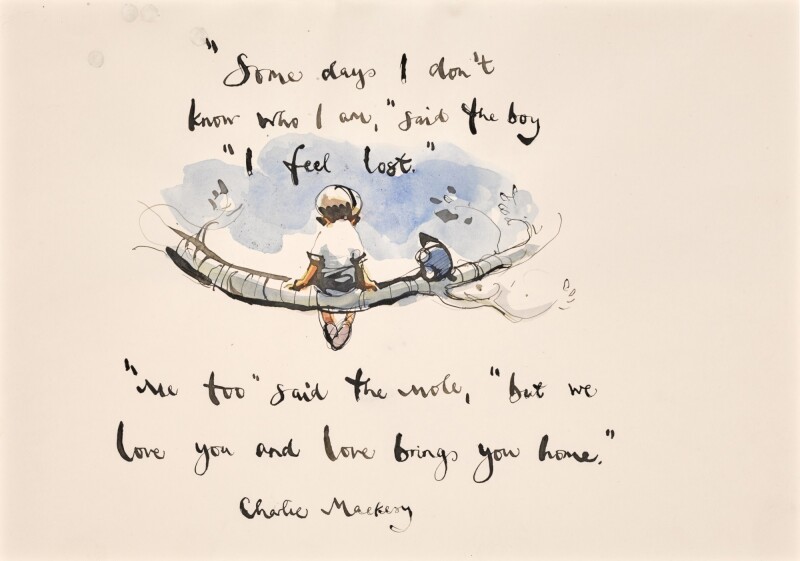 "Some days I don't
know who I am," said the boy
"I feel lost."
"Me too" said the mole, "but we
love you and love brings you home."
Charlie Mackesy